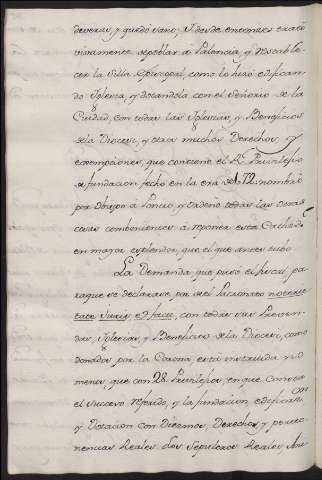 deveras, y quedó sano; y desde entonces trató
vivamente repoblar á Palencia, y restable-
cer la Silla Episcopal, como lo hizo edifican-
do Iglesia, y dotandola con el Señorio de la
Ciudad, con todas las Iglesias, y Beneficios
de la Diocesi, y otros muchos Derechos, y
exempciones, que contiene el Rl. Privilegio
de fundacion fecho en la era de nombró
por Obispo á Poncio, y ordenó todas las otras
cosas combenientes á reponer esta Cathedral
en mayor esplendor, que el que antes tubo
La Demanda que puso el fiscal pa-
raque se declarase por de el Patronato
 con todas sus Preven-
das, Iglesias, y Beneficios de la Diocesi, como
donados por la Corona, está instruida no
menos que con 28. Privilegios, en que consta
el suceso referido, y la fundacion, edificacion
y Dotacion con Diezmos, Derechos, y perte-
nencias Reales, dos Sepulcros Reales,